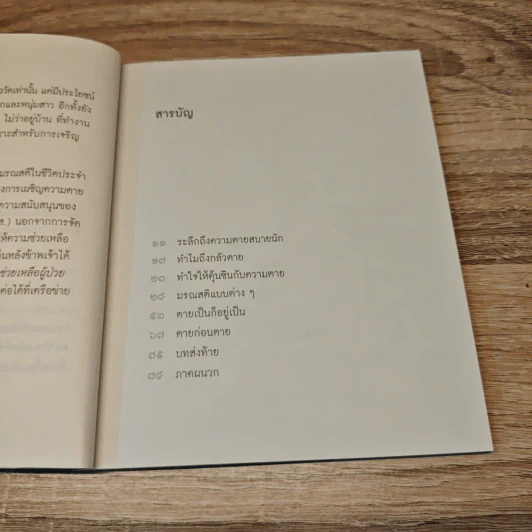 งวัดเท่านั้น แต่มีประโยชน์
กและหนุ่มสาว อีกทั้งยัง
ไม่ว่าอยู่บ้าน ที่ทำงาน
าะสำหรับการเจริญ
มรณสติในชีวิตประจำ
องการเผชิญความตาย
ความสนับสนุนของ
ส.) นอกจากการจัด
ให้ความช่วยเหลือ
นหลังข้าพเจ้าได้
ช่วยเหลือผู้ป่วย
ต่อได้ที่เครือข่าย
สารบัญ
๑๑ ระลึกถึงความตายสบายนัก
๑๗ ทำไมถึงกลัวตาย
๒๓ ทำใจให้คุ้นชินกับความตาย
๒๘ มรณสติแบบต่าง ๆ
๕๐ ตายเป็นก็อยู่เป็น
๖๗ ตายก่อนตาย
๗๕ บทส่งท้าย
๗๘ ภาคผนวก